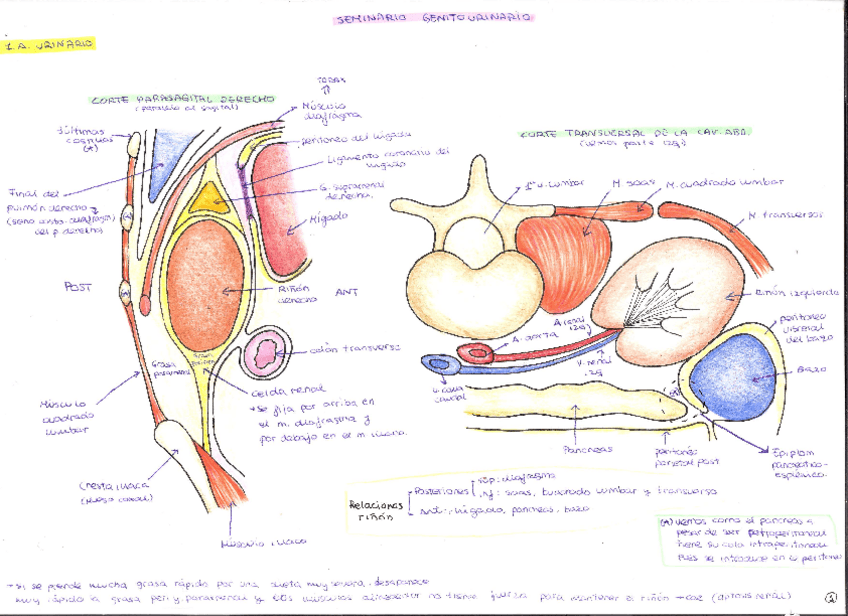 SEMINARIO GENITOURINARIO
1. A. URINARIO
CORTE PARASAGITAL DERECHO
(paralelo al sagital)
TORAX
Músculo
diafragma
Peritoneo del hígado
Ligamento coronario del
hígado
G. suprarrenal
derecha
Hígado
Riñón
derecho
ANT
Colon transverso
Celda renal
se fija por arriba en
el m. diafragma y
por debajo en el m. iliaco.
últimas
costillas
(*)
Final del
pulmón derecho
del p. derecho)
POST
Grasa
pararrenal
Músculo
cuadrado
lumbar
Cresta iliaca
(hueso coxal)
Músculo iliaco
CORTE TRANSVERSAL DE LA CAV. ABD.
(vemos parte izq)
1ª v. lumbar
M. psoas
M. cuadrado lumbar
M. transverso
Riñón izquierdo
peritoneo
visceral
del bazo
Bazo
A. renal
izq
A. aorta
V. renal
izq
V. cava
caudal
Páncreas
peritoneo
parietal post
Epiplon
pancreático-
esplénico
Relaciones
riñón
Posteriores
sup: diafragma
inf: psoas, cuadrado lumbar y transverso
Ant: hígado, páncreas, bazo
(*) vemos como el páncreas a
pesar de ser retroperitoneal
tiene su cola intraperitoneal
pues se introduce en el peritoneo
→ si se pierde mucha grasa rápido por una dieta muy severa, desaparece
muy rápido la grasa peri y pararrenal y los músculos no tiene fuerza para mantener el riñón → cae (ptosis renal)